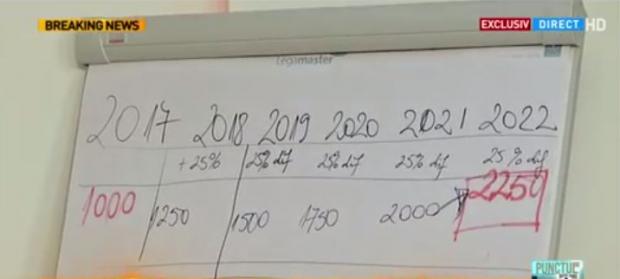 BREAKING NEWS
EXCLUSIV DIRECT HD
Legamaster
2017 2018 2019 2020 2021 2022
+25% 25% dif 25% dif 25% dif 25% dif
1000 1250 1500 1750 2000 2250
PUNCTUL